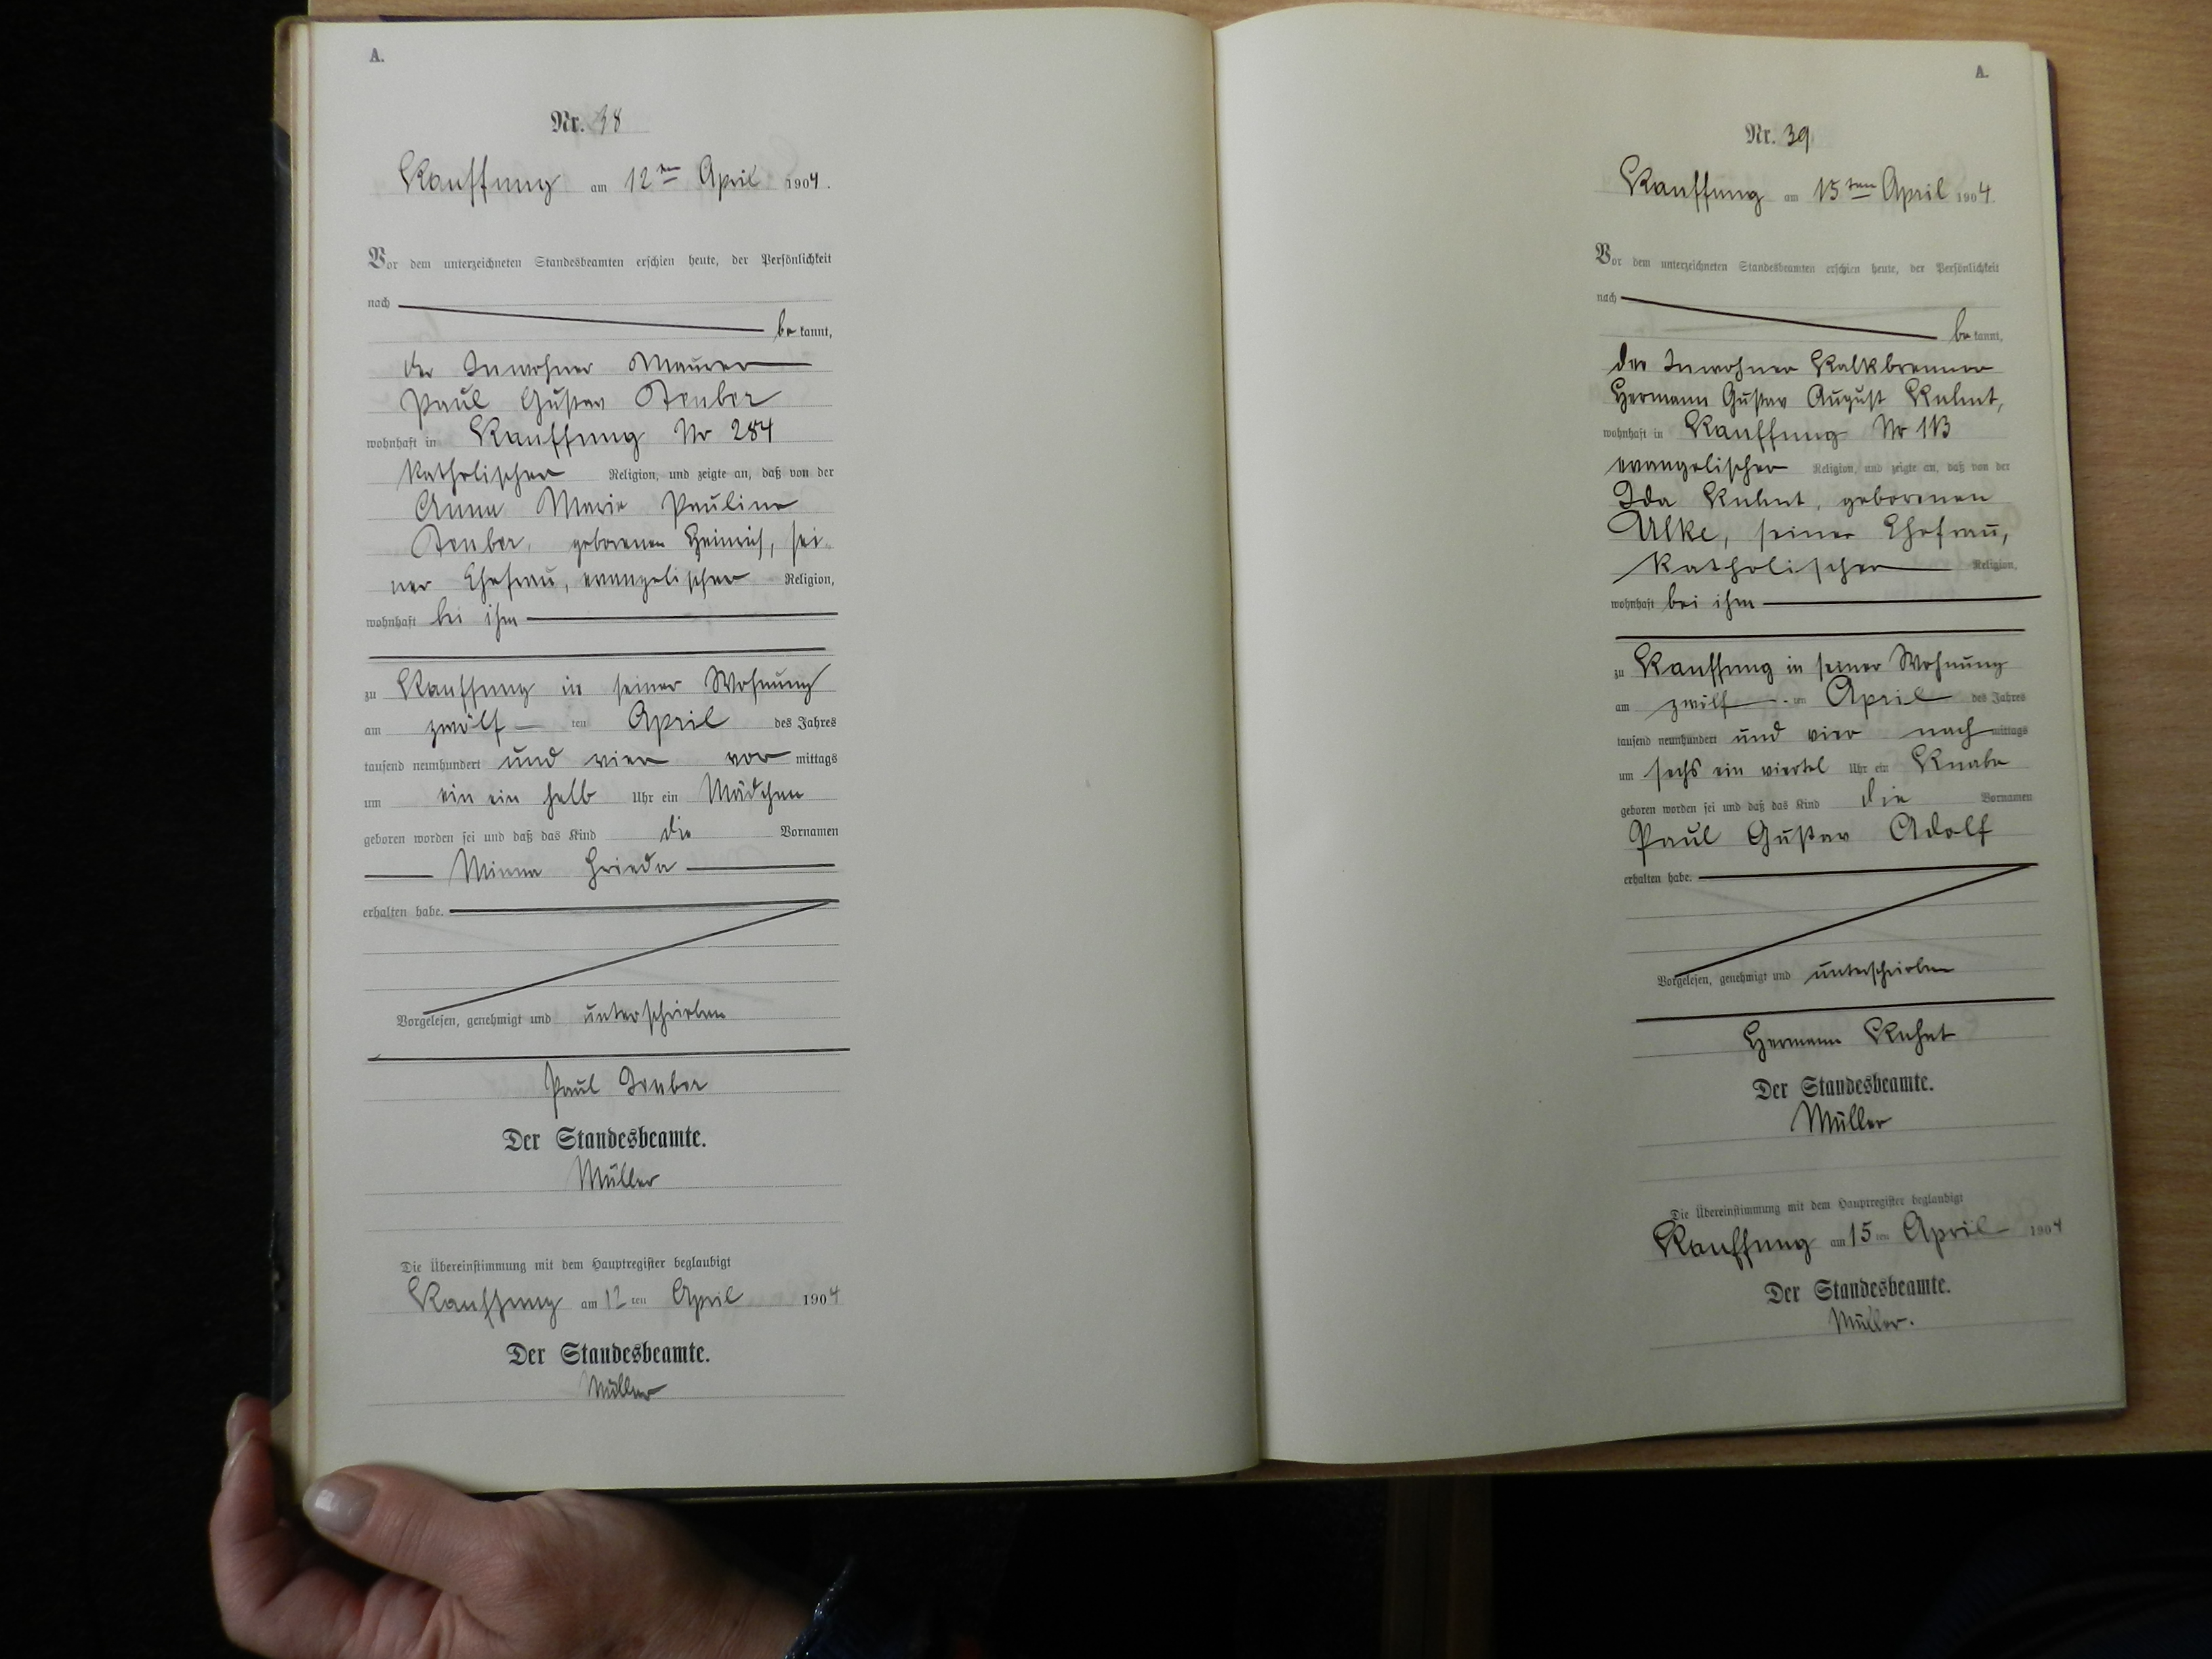 A.
Nr. 38
Kauffung am 12ten April 1904.
Vor dem unterzeichneten Standesbeamten erschien heute, der Persönlichkeit
nach
be kannt,
der Inwohner Maurer
Paul Gustav Teuber
wohnhaft in Kauffung Nr 284
katholischer Religion, und zeigte an, daß von der
Anna Marie Pauline
Teuber, geborenen Heinrich, sei
ner Ehefrau, evangelischer Religion,
wohnhaft bei ihm
zu Kauffung in seiner Wohnung
am zwölf ten April des Jahres
tausend neunhundert und vier vor mittags
um ein ein halb Uhr ein Mädchen
geboren worden sei und daß das Kind die Vornamen
Minna Frieda
erhalten habe.
Vorgelesen, genehmigt und unterschrieben
Paul Teuber
Der Standesbeamte.
Müller
Die Übereinstimmung mit dem Hauptregister beglaubigt
Kauffung am 12 ten April 1904
Der Standesbeamte.
Müller
A.
Nr. 39
Kauffung am 15ten April 1904.
Vor dem unterzeichneten Standesbeamten erschien heute, der Persönlichkeit
nach
be kannt,
der Inwohner Kalkbrenner
Hermann Gustav August Kuhnt,
wohnhaft in Kauffung Nr 113
evangelischer Religion, und zeigte an, daß von der
Ida Kuhnt, geborenen
Ulke, seiner Ehefrau,
katholischer Religion,
wohnhaft bei ihm
zu Kauffung in seiner Wohnung
am zwölf ten April des Jahres
tausend neunhundert und vier nach mittags
um sechs ein viertel Uhr ein Knabe
geboren worden sei und daß das Kind die Vornamen
Paul Gustav Adolf
erhalten habe.
Vorgelesen, genehmigt und unterschrieben
Hermann Kuhnt
Der Standesbeamte.
Müller
Die Übereinstimmung mit dem Hauptregister beglaubigt
Kauffung am 15 ten April 1904
Der Standesbeamte.
Müller.